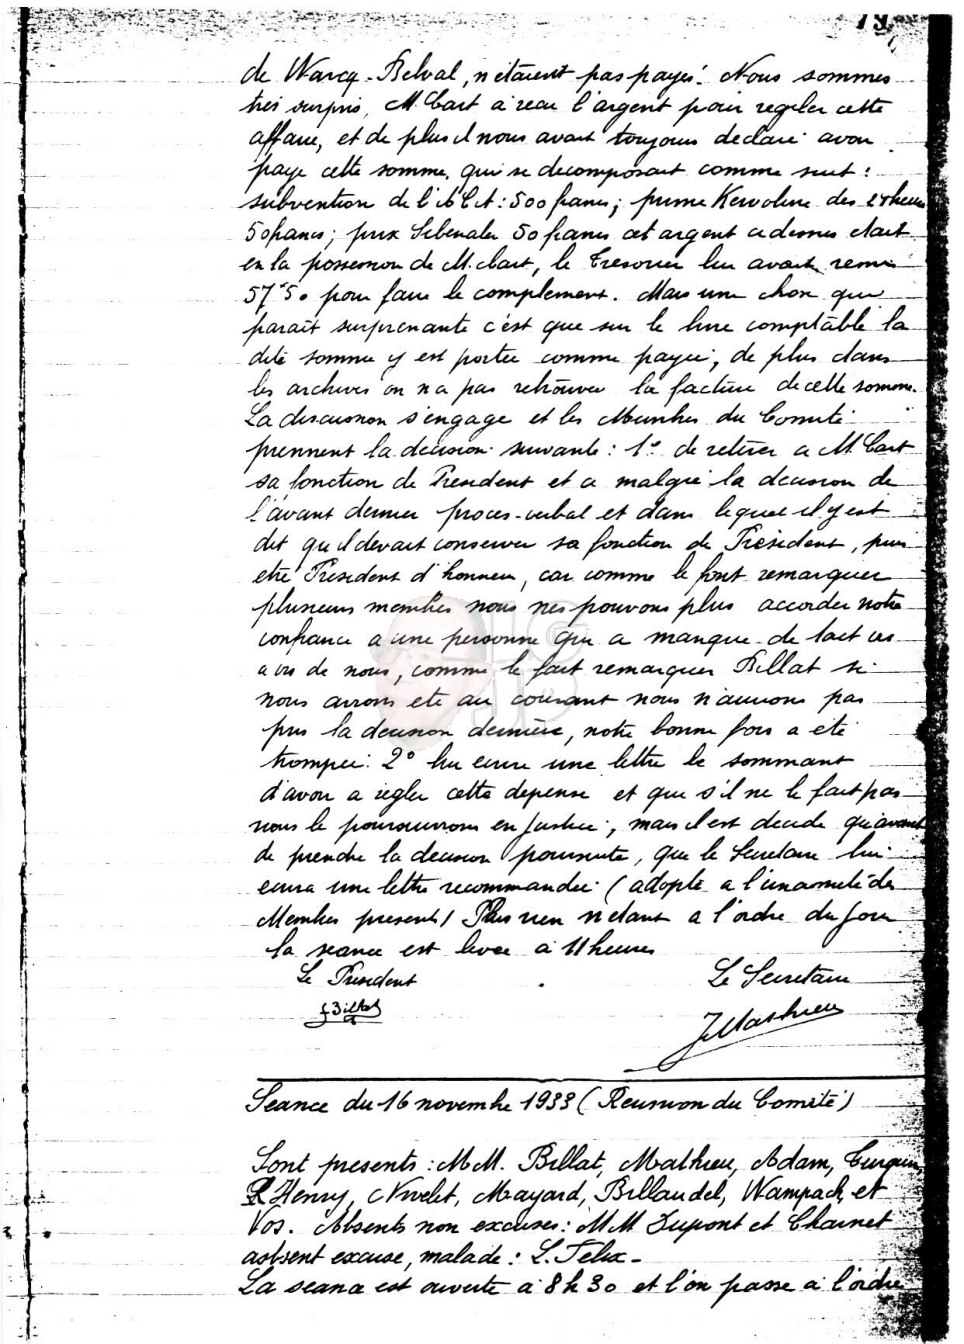 79
de Warcq-Belval, n'étaient pas payés. Nous sommes
très surpris, M. Cart a reçu l'argent pour regler cette
affaire, et de plus il nous avait toujours declaré avoir
payé cette somme, qui se decomposait comme suit :
subvention de l'ACA : 500 francs ; prime Kervoline des 24 heures
50 francs ; prix Sibenaler 50 francs cet argent ci dessus etait
en la possession de M. Cart, le Tresorier lui avait remis
57f50 pour faire le complement. Mais une chose qui
parait surprenante c'est que sur le livre comptable la
dite somme y est portée comme payée, de plus dans
les archives on n'a pas retrouver la facture de cette somme.
La discussion s'engage et les Membres du Comité
prennent la decision suivante : 1° de retirer a M. Cart
sa fonction de President et a malgré la decision de
l'avant dernier proces-verbal et dans lequel il y est
dit qu'il devait conserver sa fonction de President, puis
etre President d'honneur, car comme le font remarquer
plusieurs membres nous nes pouvons plus accorder notre
confiance a une personne qui a manqué de tact vis
a vis de nous, comme le fait remarquer Billat si
nous avions ete au courant nous n'aurions pas
pris la decision dernière, notre bonne fois a eté
trompée. 2° lui ecrire une lettre le sommant
d'avoir a regler cette depense et que s'il ne le fait pas
nous le poursuivrons en Justice, mais il est decidé qu'avant
de prendre la decision poursuite, que le Secretaire lui
ecrira une lettre recommandée. (adopté a l'unanimité des
Membres presents) Plus rien n'etant a l'ordre du jour
la seance est levée a 11 heures
Le President Le Secretaire
J Billat JMathieu
Seance du 16 novembre 1933 (Reunion du Comité)
Sont presents : M.M. Billat, Mathieu, Adam, Turquin,
R Henry, Nivelet, Mayard, Billaudel, Wampach, et
Vos. Absents non excuses : MM Dupont et Charnet
asbsent excuse, malade : L. Felix -
La seance est ouverte a 8h30 et l'on passe a l'ordre